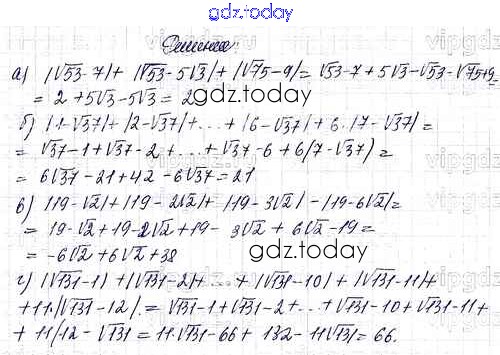 gdz.today
Решение
а) |√53-7|+ |√53-5√3|+ |√75-9|= √53-7+5√3-√53-√75+9=
= 2+5√3-5√3= 2
gdz.today
б) |1-√37|+ |2-√37|+...+ |6-√37|+ 6·|7-√37|=
= √37-1+√37-2+...+√37-6+6(7-√37)=
= 6√37-21+42-6√37=21
в) |19-√2|+|19-2√2|+ |19-3√2| -|19-6√2|=
= 19-√2+19-2√2+19- 3√2+ 6√2-19=
= -6√2+6√2+38
gdz.today
г) |√131-1| +|√131-2|+...+ |√131-10|+ |√131-11|+
+11·|√131-12|= √131-1+√131-2+...+√131-10+√131-11+
+ 11|12-√131|= 11·√131-66+ 132-11√131= 66.
gdz.today